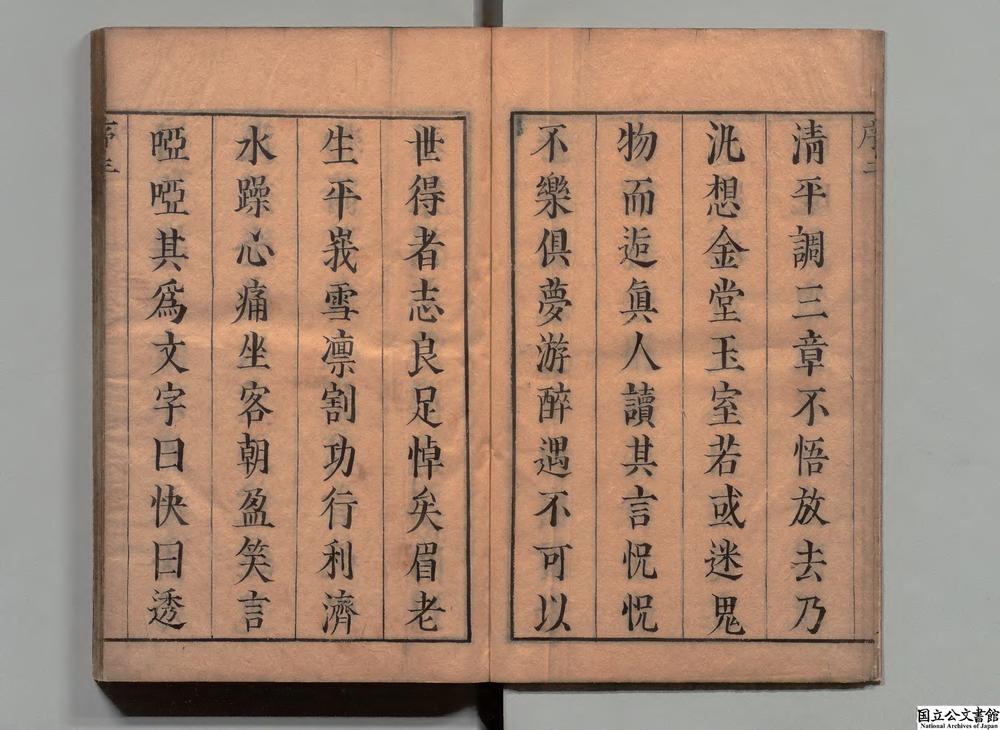 清平調三章不悟放去乃
洮想金堂玉室若或迷鬼
物而逅眞人讀其言怳怳
不樂俱夢游醉遇不可以
世得者志良足悼矣眉老
生平峩雪凛割功行利濟
水躁心痛坐客朝盈笑言
啞啞其爲文字曰快曰透
国立公文書館
National Archives of Japan